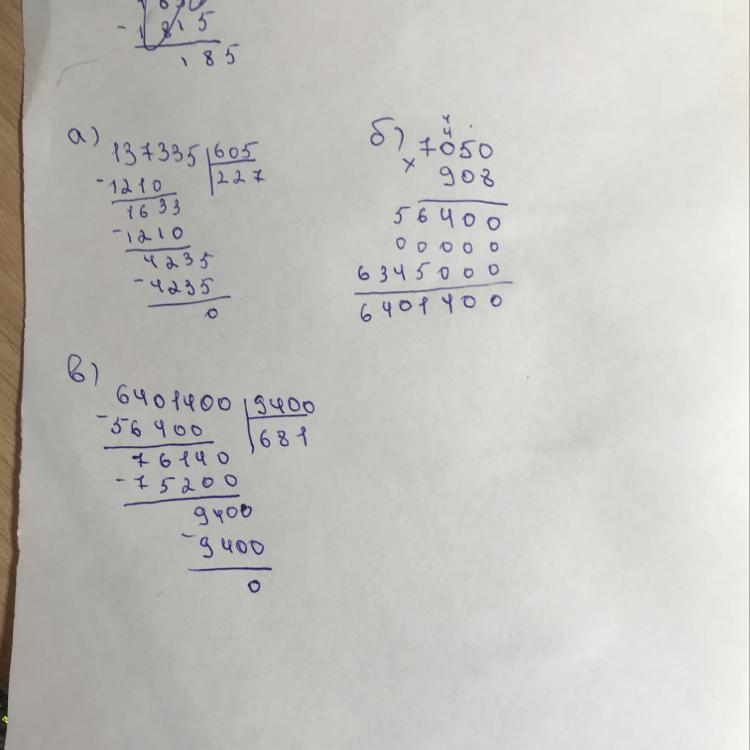 - 1815
185
а)
137335 | 605
- 1210 | 227
1633
- 1210
4235
- 4235
0
б)
4
4
7050
× 908
56400
00000
6345000
6401400
в)
6401400 | 9400
- 56400 | 681
76140
- 75200
9400
- 9400
0